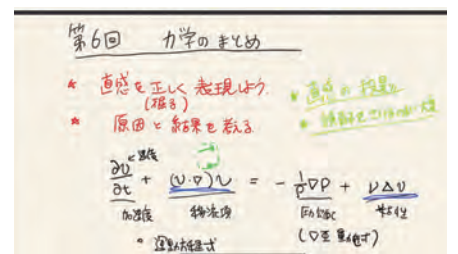 第6回 力学のまとめ
* 直感を正しく表現しよう.
(掘る)
* 原因と結果を考える
* 直感の
速度
∂υ/∂t + (υ・∇)υ = - 1/ρ ∇P + νΔυ
加速度 移流項 圧力勾配 粘性
• 運動方程式